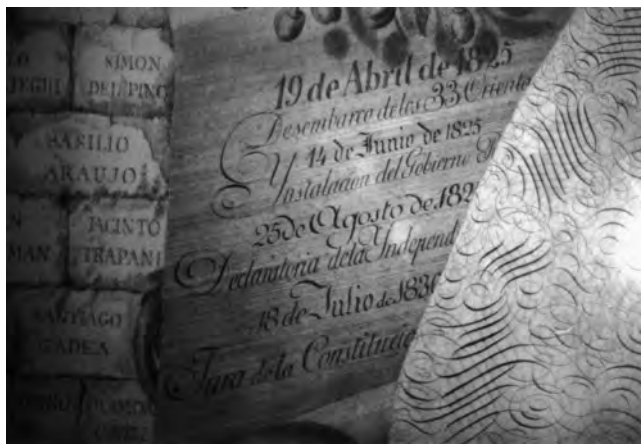 SIMON
DEL PINO
BASILIO
ARAUJO
JACINTO
TRAPANI
SANTIAGO
GADEA
19 de Abril de 1825
Desembarco de los 33 Orienta
Y 14 de Junio de 1825
Instalación del Gobierno P
25 de Agosto de 182
Declaratoria de la Independ
18 de Julio de 1830
Jura de la Constitució